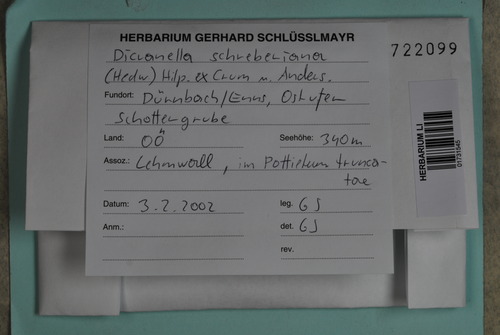 HERBARIUM GERHARD SCHLÜSSLMAYR
722099
Dicranella schreberiana
(Hedw.) Hilp. ex Crum u. Anders.
Fundort: Dürnbach/Enns, Ostufer
Schottergrube
Land: OÖ Seehöhe: 340m
Assoz.: Lehmwall, im Pottietum trunca-
tae
Datum: 3.2.2002 leg. GS
Anm.: det. GS
rev.
HERBARIUM LI
01731545